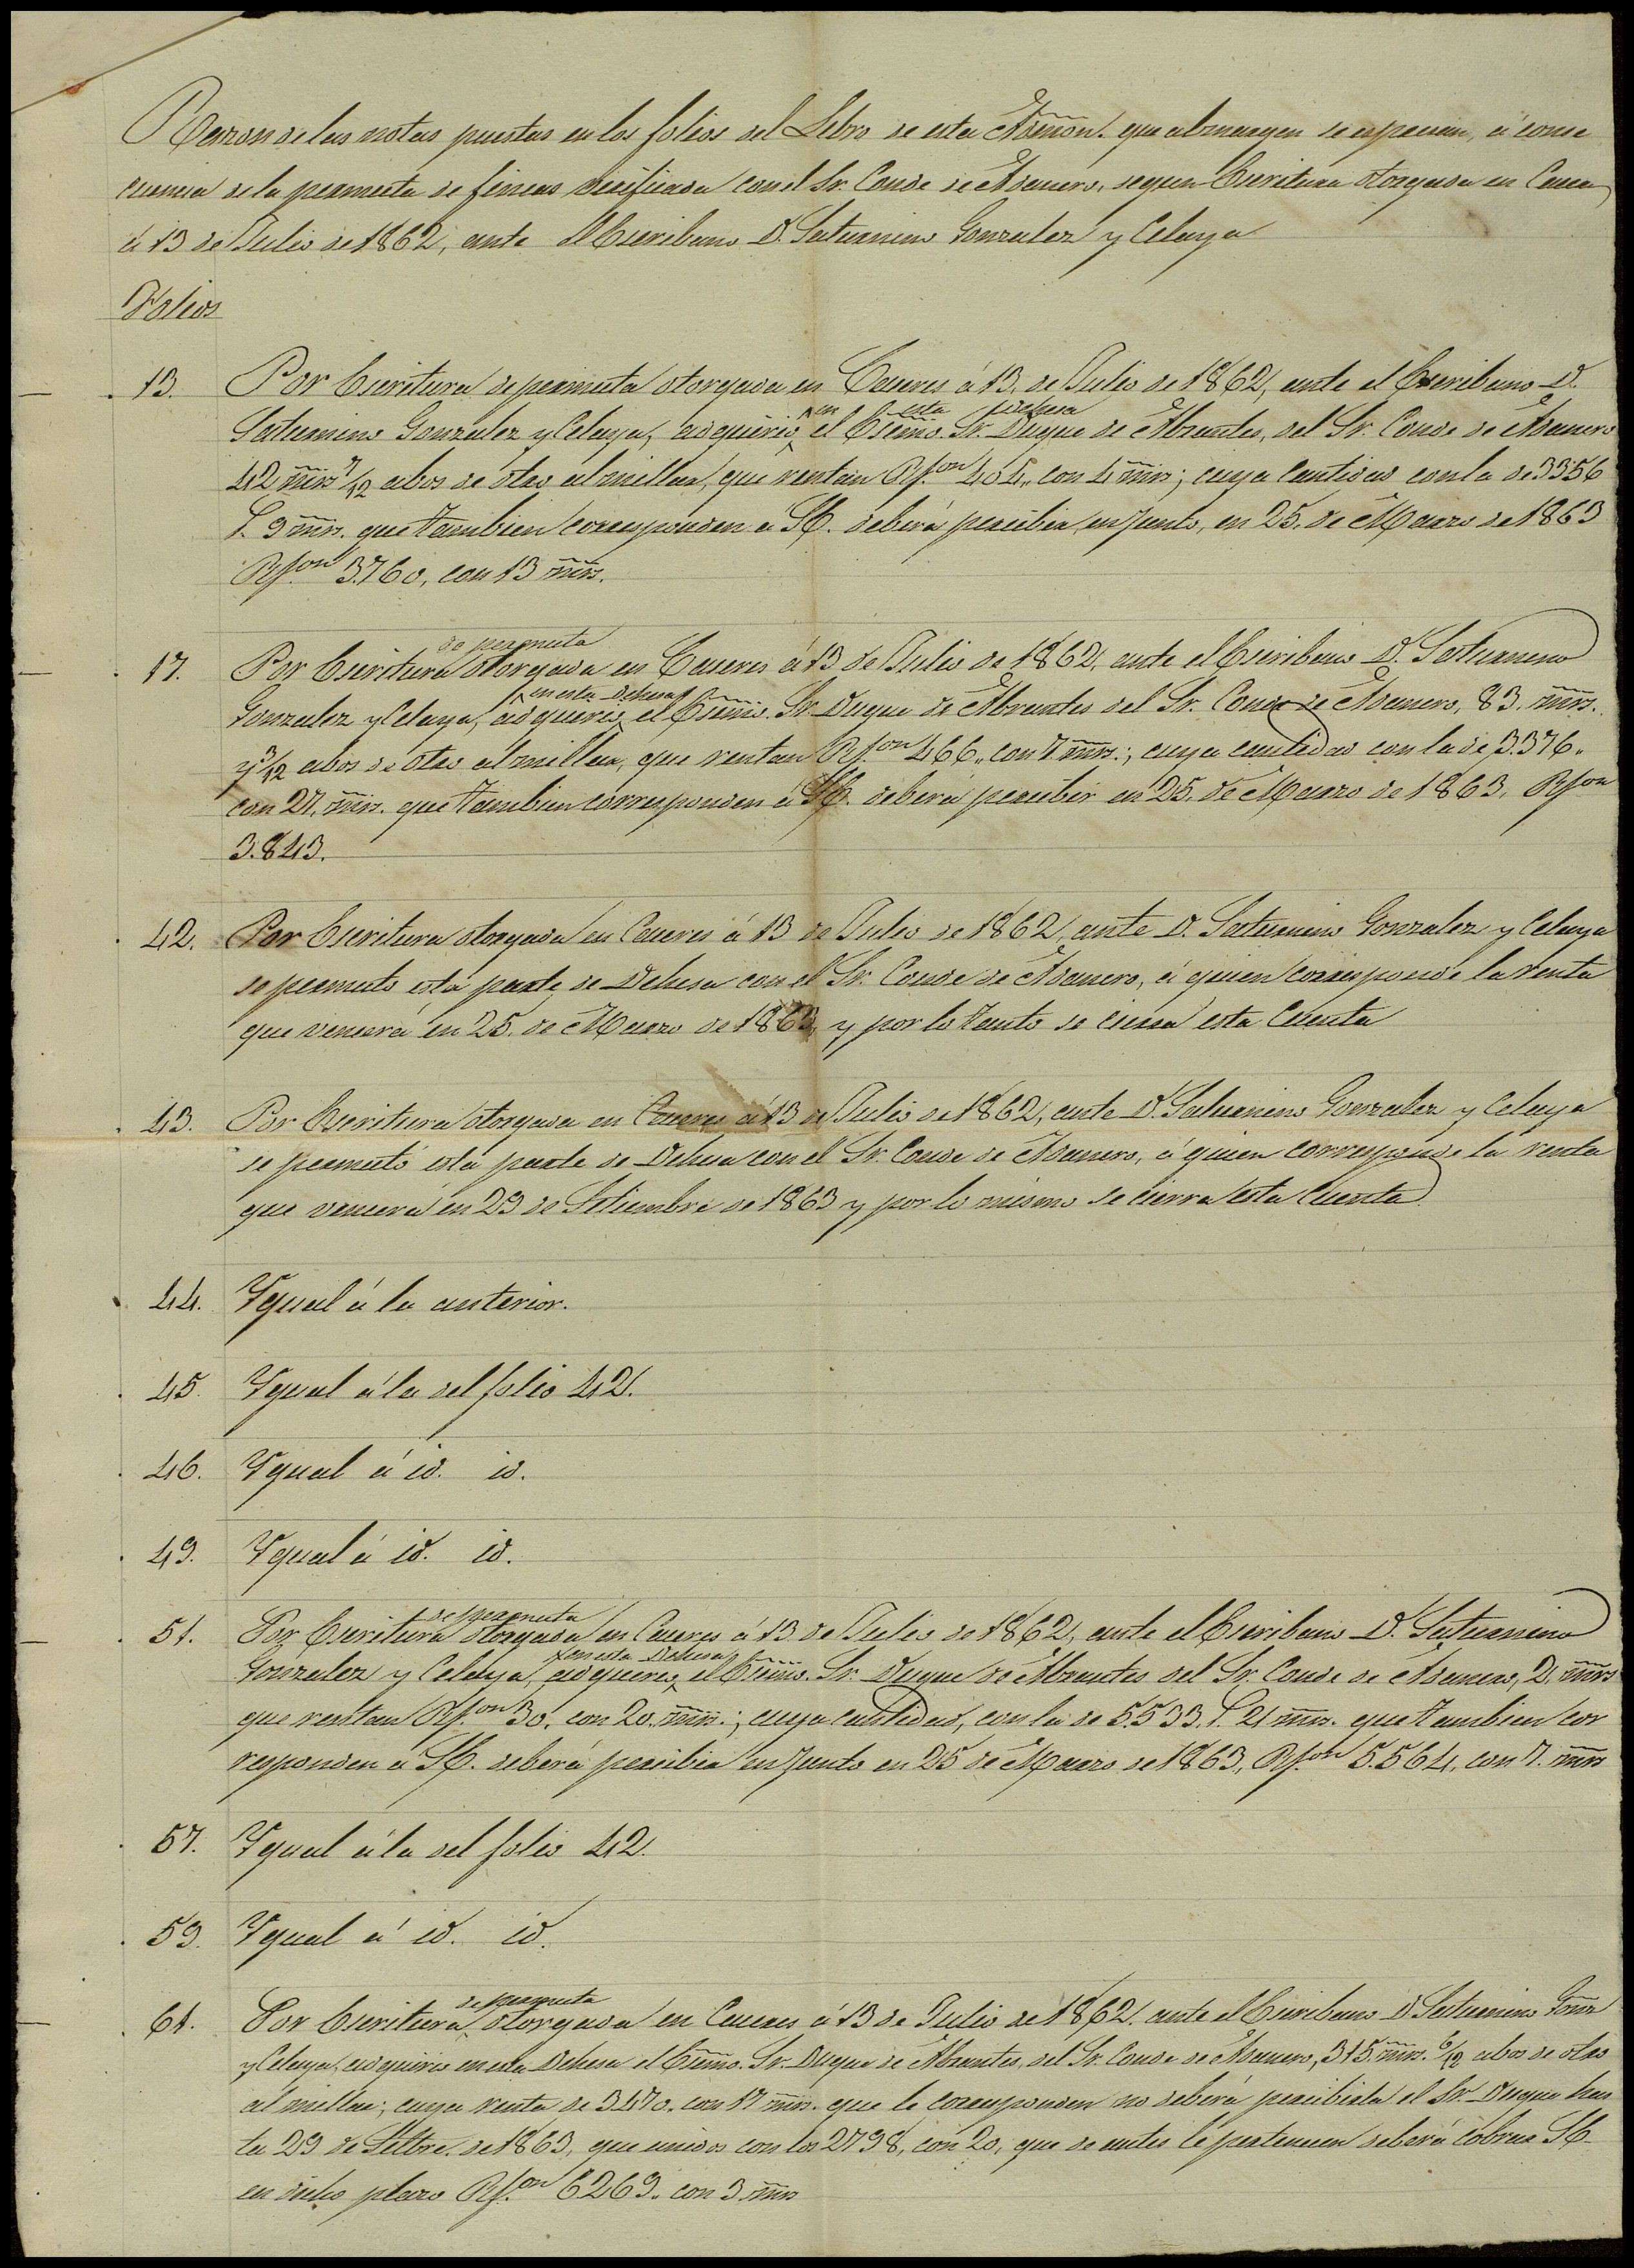 Razon de las notas puestas en los folios del Libro de esta Admon. que al margen se espresan, á conse
cuencia de la permuta de fincas verificada con el Sr. Conde de Adanero, segun Escritura otorgada en Caceres
á 13 de Julio de 1862, ante el Escribano D. Saturnino Gonzalez y Celaya
Folios
13. Por Escritura de permuta otorgada en Caceres á 13. de Julio de 1862, ante el Escribano D.
Saturnino Gonzalez y Celaya, adquirió en esta Dehesa el Escmo. Sr. Duque de Abrantes, del Sr. Conde de Adanero
42 mrs 7/12 abos de otro al millar, que rentan Rs.on 404,, con 4 mrs; cuya cantidad con la de 3356
9 mrs. que tambien corresponden a SE. deberá percibir en junto, en 25. de Marzo de 1863
Rs.on 3.760, con 13 mrs.
17. Por Escritura de permuta otorgada en Caceres á 13 de Julio de 1862. ante el Escribano D. Saturnino
Gonzalez y Celaya, adquirió en esta Dehesa el Escmo. Sr. Duque de Abrantes del Sr. Conde de Adanero, 83. mrs.
y 3/12 abos de otro al millar, que rentan Rs.on 466,, con 7 mrs.; cuya cantidad con la de 3.376,,
con 27. mrs. que tambien corresponden á SE. deberá percibir en 25. de Marzo de 1863. Rs.on
3.843.
42. Por Escritura otorgada en Caceres á 13 de Julio de 1862, ante D. Saturnino Gonzalez y Celaya
se permutó esta parte de Dehesa con el Sr. Conde de Adanero, á quien corresponde la renta
que vencerá en 25. de Marzo de 1863, y por lo tanto se cierra esta Cuenta
43. Por Escritura otorgada en Caceres á 13 de Julio de 1862, ante D. Saturnino Gonzalez y Celaya
se permutó esta parte de Dehesa con el Sr. Conde de Adanero, á quien corresponde la renta
que vencerá en 29 de Setiembre de 1863 y por lo mismo se cierra esta Cuenta
44. Ygual á la anterior.
45. Ygual á la del folio 42.
46. Ygual á id. id.
49. Ygual á id. id.
51. Por Escritura de permuta otorgada en Caceres á 13 de Julio de 1862, ante el Escribano D. Saturnino
Gonzalez y Celaya, adquirió en esta Dehesa el Escmo. Sr. Duque de Abrantes del Sr. Conde de Adanero, 2. mrs
que rentan Rs.on 30. con 20. mrs.; cuya cantidad, con la de 5.533. 21 mrs. que tambien cor
responden a SE. deberá percibir en junto en 25 de Marzo de 1863, Rs.on 5.564, con 7. mrs
57. Ygual á la del folio 42.
59. Ygual á id. id.
61. Por Escritura de permuta otorgada en Caceres á 13 de Julio de 1862. ante el Escribano D. Saturnino Gonz
y Celaya, adquirió en esta Dehesa el Escmo. Sr. Duque de Abrantes, del Sr. Conde de Adanero, 315. mrs. 6/12 abos de otro
al millar, cuya renta de 3470. con 17 mrs. que le corresponden no deberá percibirla el Sr. Duque has
ta 29 de Setbre. de 1863, que unidos con los 2798, con 20, que de antes le pertenecen deberá cobrar SE.
en dicho plazo Rs.on 6269. con 3 mrs